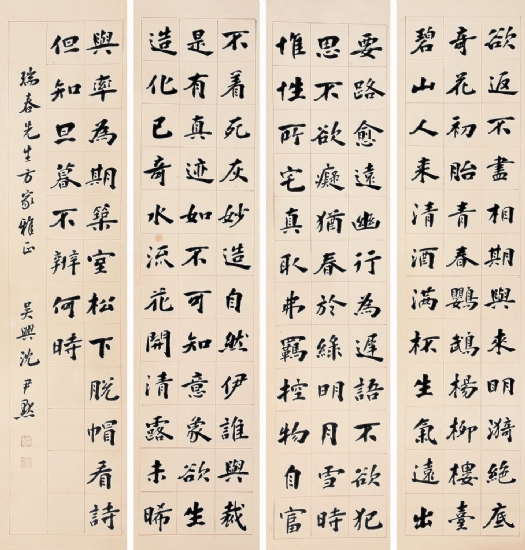 欲返不盡相期與來明漪絕底
奇花初胎青春鸚鵡楊柳樓臺
碧山人來清酒滿杯生氣遠出
要路愈遠幽行為遲語不欲犯
思不欲癡猶春於綠明月雪時
惟性所宅真取弗羈控物自富
不着死灰妙造自然伊誰與裁
是有真迹如不可知意象欲生
造化已奇水流花開清露未晞
與率為期築室松下脫帽看詩
但知旦暮不辨何時
瑞春先生方家雅正 吳興沈尹默